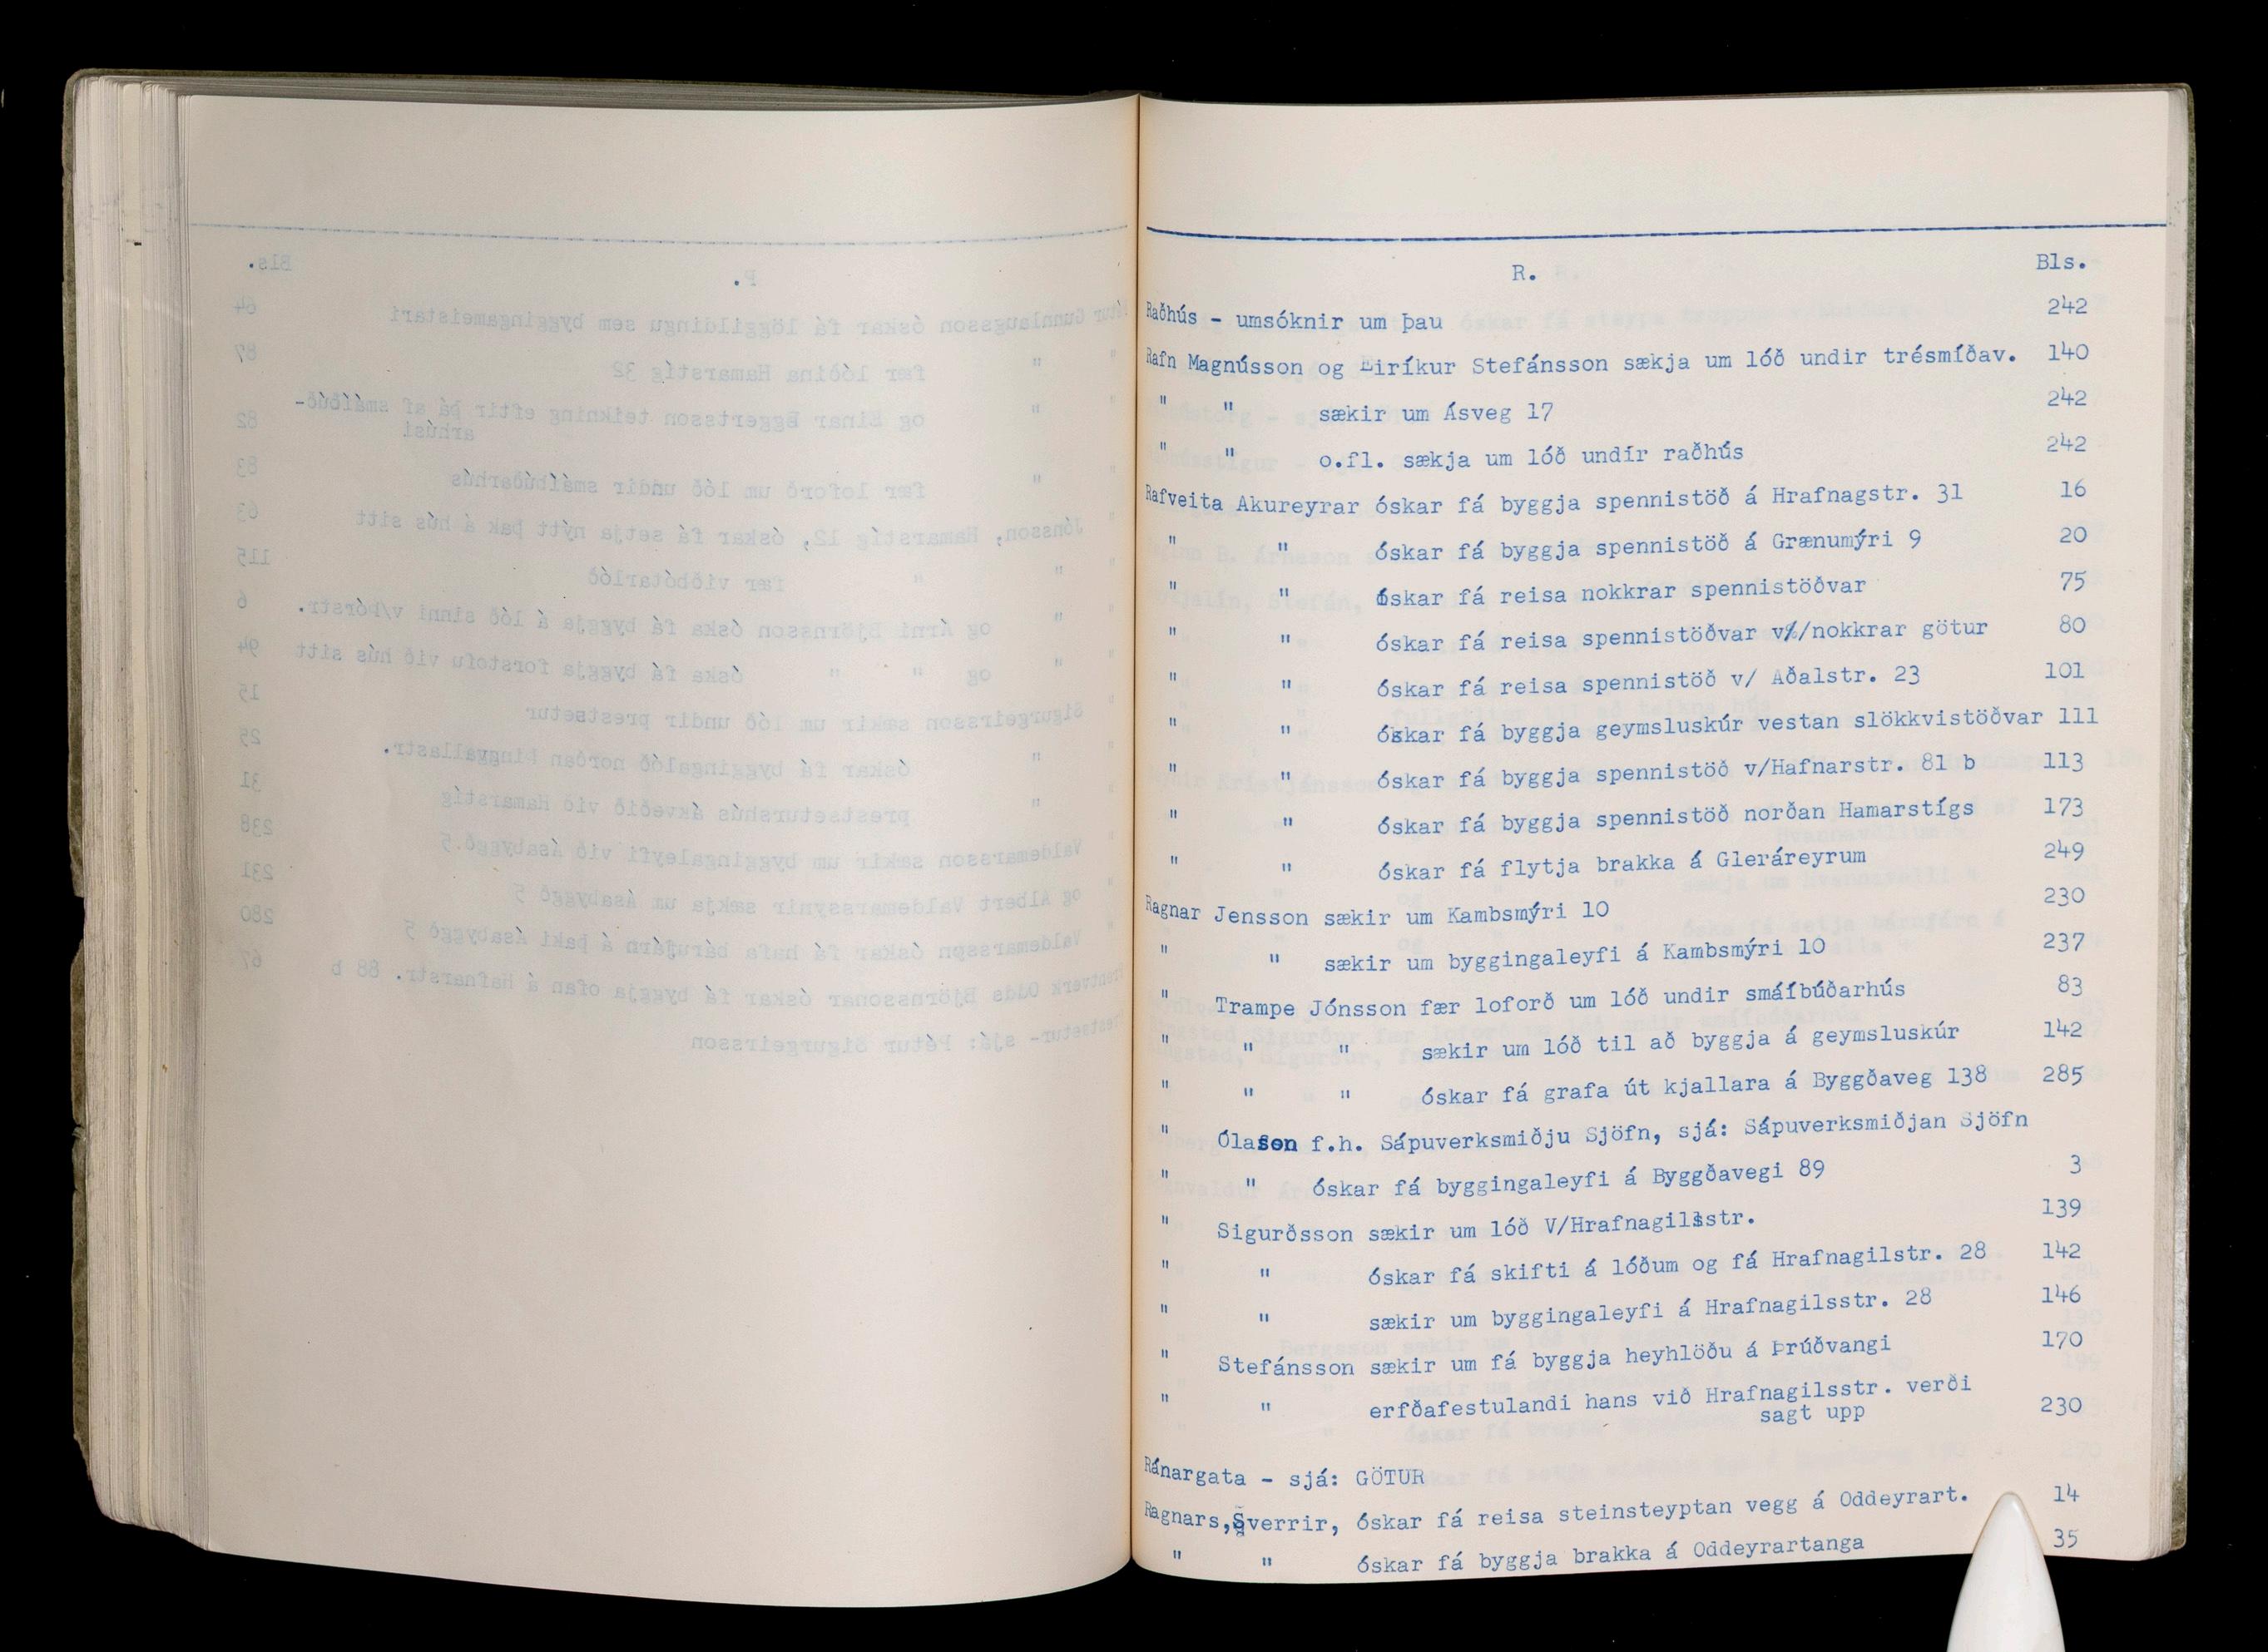 R. Bls.
Raðhús - umsóknir um þau 242
Rafn Magnússon og Eiríkur Stefánsson sækja um lóð undir trésmíðav. 140
" " sækir um Ásveg 17 242
" " o.fl. sækja um lóð undír raðhús 242
Rafveita Akureyrar óskar fá byggja spennistöð á Hrafnagstr. 31 16
" " óskar fá byggja spennistöð á Grænumýri 9 20
" " óskar fá reisa nokkrar spennistöðvar 75
" " óskar fá reisa spennistöðvar v/nokkrar götur 80
" " óskar fá reisa spennistöð v/ Aðalstr. 23 101
" " óskar fá byggja geymsluskúr vestan slökkvistöðvar 111
" " óskar fá byggja spennistöð v/Hafnarstr. 81 b 113
" " óskar fá byggja spennistöð norðan Hamarstígs 173
" " óskar fá flytja brakka á Gleráreyrum 249
Ragnar Jensson sækir um Kambsmýri 10 230
" " sækir um byggingaleyfi á Kambsmýri 10 237
" Trampe Jónsson fær loforð um lóð undir smáíbúðarhús 83
" " " sækir um lóð til að byggja á geymsluskúr 142
" " " óskar fá grafa út kjallara á Byggðaveg 138 285
" Ólason f.h. Sápuverksmiðju Sjöfn, sjá: Sápuverksmiðjan Sjöfn
" " óskar fá byggingaleyfi á Byggðavegi 89 3
" Sigurðsson sækir um lóð V/Hrafnagilsstr. 139
" " óskar fá skifti á lóðum og fá Hrafnagilstr. 28 142
" " sækir um byggingaleyfi á Hrafnagilsstr. 28 146
" Stefánsson sækir um fá byggja heyhlöðu á Þrúðvangi 170
" " erfðafestulandi hans við Hrafnagilsstr. verði
sagt upp 230
Ránargata - sjá: GÖTUR
Ragnars,Sverrir, óskar fá reisa steinsteyptan vegg á Oddeyrart. 14
" " óskar fá byggja brakka á Oddeyrartanga 35